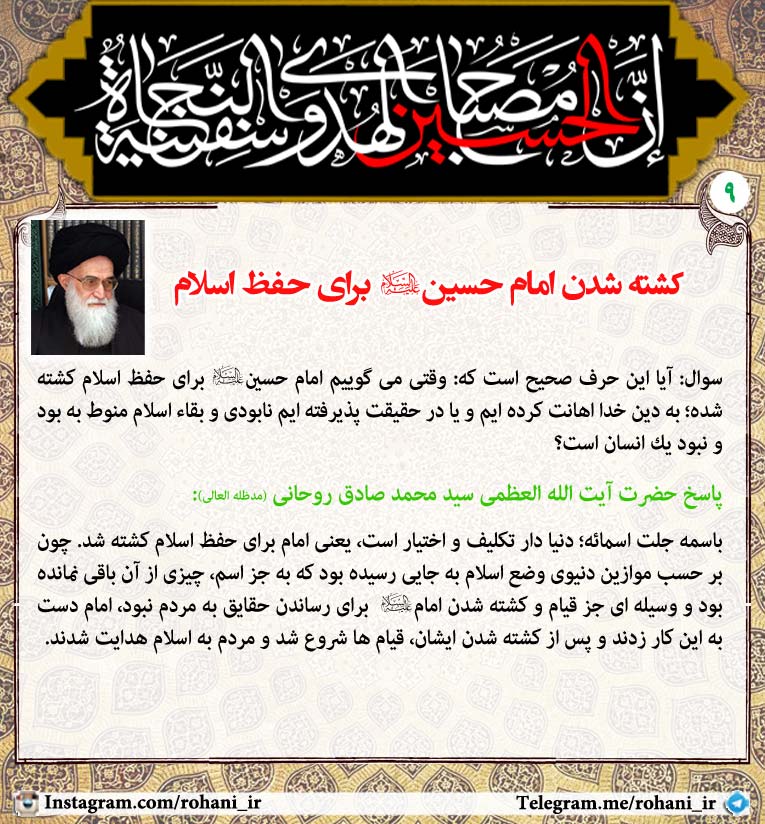 إنَّ الحسین مصباح الهدی و سفینة النَّجاة
۹
کشته شدن امام حسین علیه‌السلام برای حفظ اسلام
سوال: آیا این حرف صحیح است که: وقتی می گوییم امام حسین علیه‌السلام برای حفظ اسلام کشته
شده؛ به دین خدا اهانت کرده ایم و یا در حقیقت پذیرفته ایم نابودی و بقاء اسلام منوط به بود
و نبود یك انسان است؟
پاسخ حضرت آیت الله العظمی سید محمد صادق روحانی (مدظله العالی):
باسمه جلت اسمائه؛ دنیا دار تکلیف و اختیار است، یعنی امام برای حفظ اسلام کشته شد. چون
بر حسب موازین دنیوی وضع اسلام به جایی رسیده بود که به جز اسم، چیزی از آن باقی نمانده
بود و وسیله ای جز قیام و کشته شدن امام علیه‌السلام برای رساندن حقایق به مردم نبود، امام دست
به این کار زدند و پس از کشته شدن ایشان، قیام ها شروع شد و مردم به اسلام هدایت شدند.
Instagram.com/rohani_ir
Telegram.me/rohani_ir